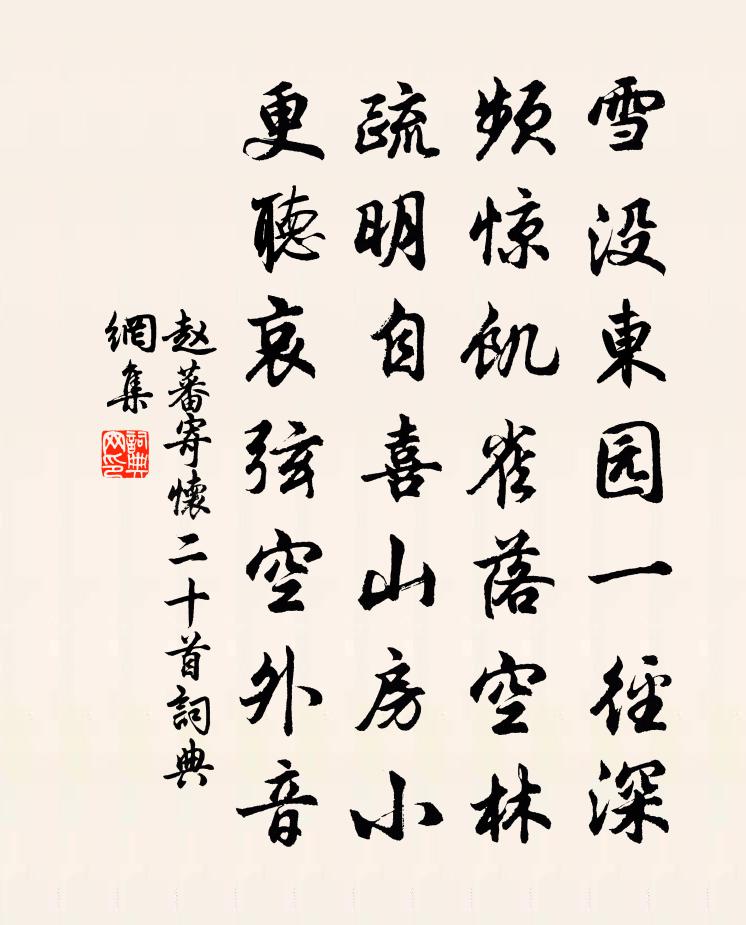 雪没東园一径深
频惊飢雀落空林
疏明自喜山房小
更聴哀弦空外音
赵蕃寄懷二十首詞典
網集
詞典
网印